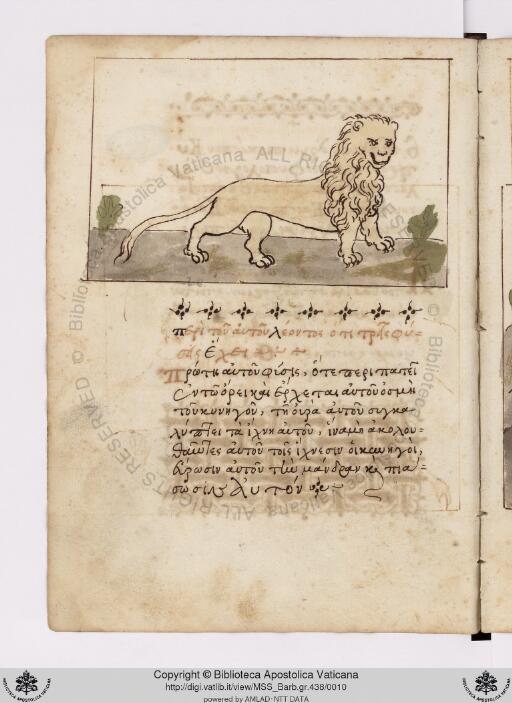 περὶ τοῦ αὐτοῦ λέοντος ὅτι τρεῖς φύ-
σεις ἔχει
Πρώτη αὐτοῦ φύσις, ὅτε περιπατεῖ
ἐν τῷ ὄρει καὶ ἔρχεται αὐτοῦ ὀσμὴ
τοῦ κυνηγοῦ, τῇ οὐρᾷ αὐτοῦ συγκα-
λύπτει τὰ ἴχνη αὐτοῦ, ἵνα μὴ ἀκολου-
θοῦντες αὐτοῦ τοῖς ἴχνεσιν οἱ κυνηγοὶ,
εὕρωσιν αὐτοῦ τὴν μάνδραν κ πιά-
σωσιν αὐτόν
Copyright © Biblioteca Apostolica Vaticana
http://digi.vatlib.it/view/MSS_Barb.gr.438/0010
powered by AMLAD-NTT DATA